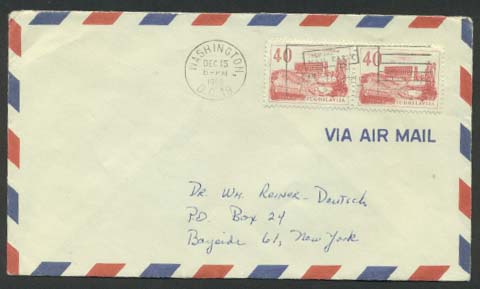 WASHINGTON,
DEC 15
D.C. 19
40
JUGOSLAVIJA
40
JUGOSLAVIJA
VIA AIR MAIL
Dr. Wm. Reiner-Deutsch
P.O. Box 24
Bayside 61, New York